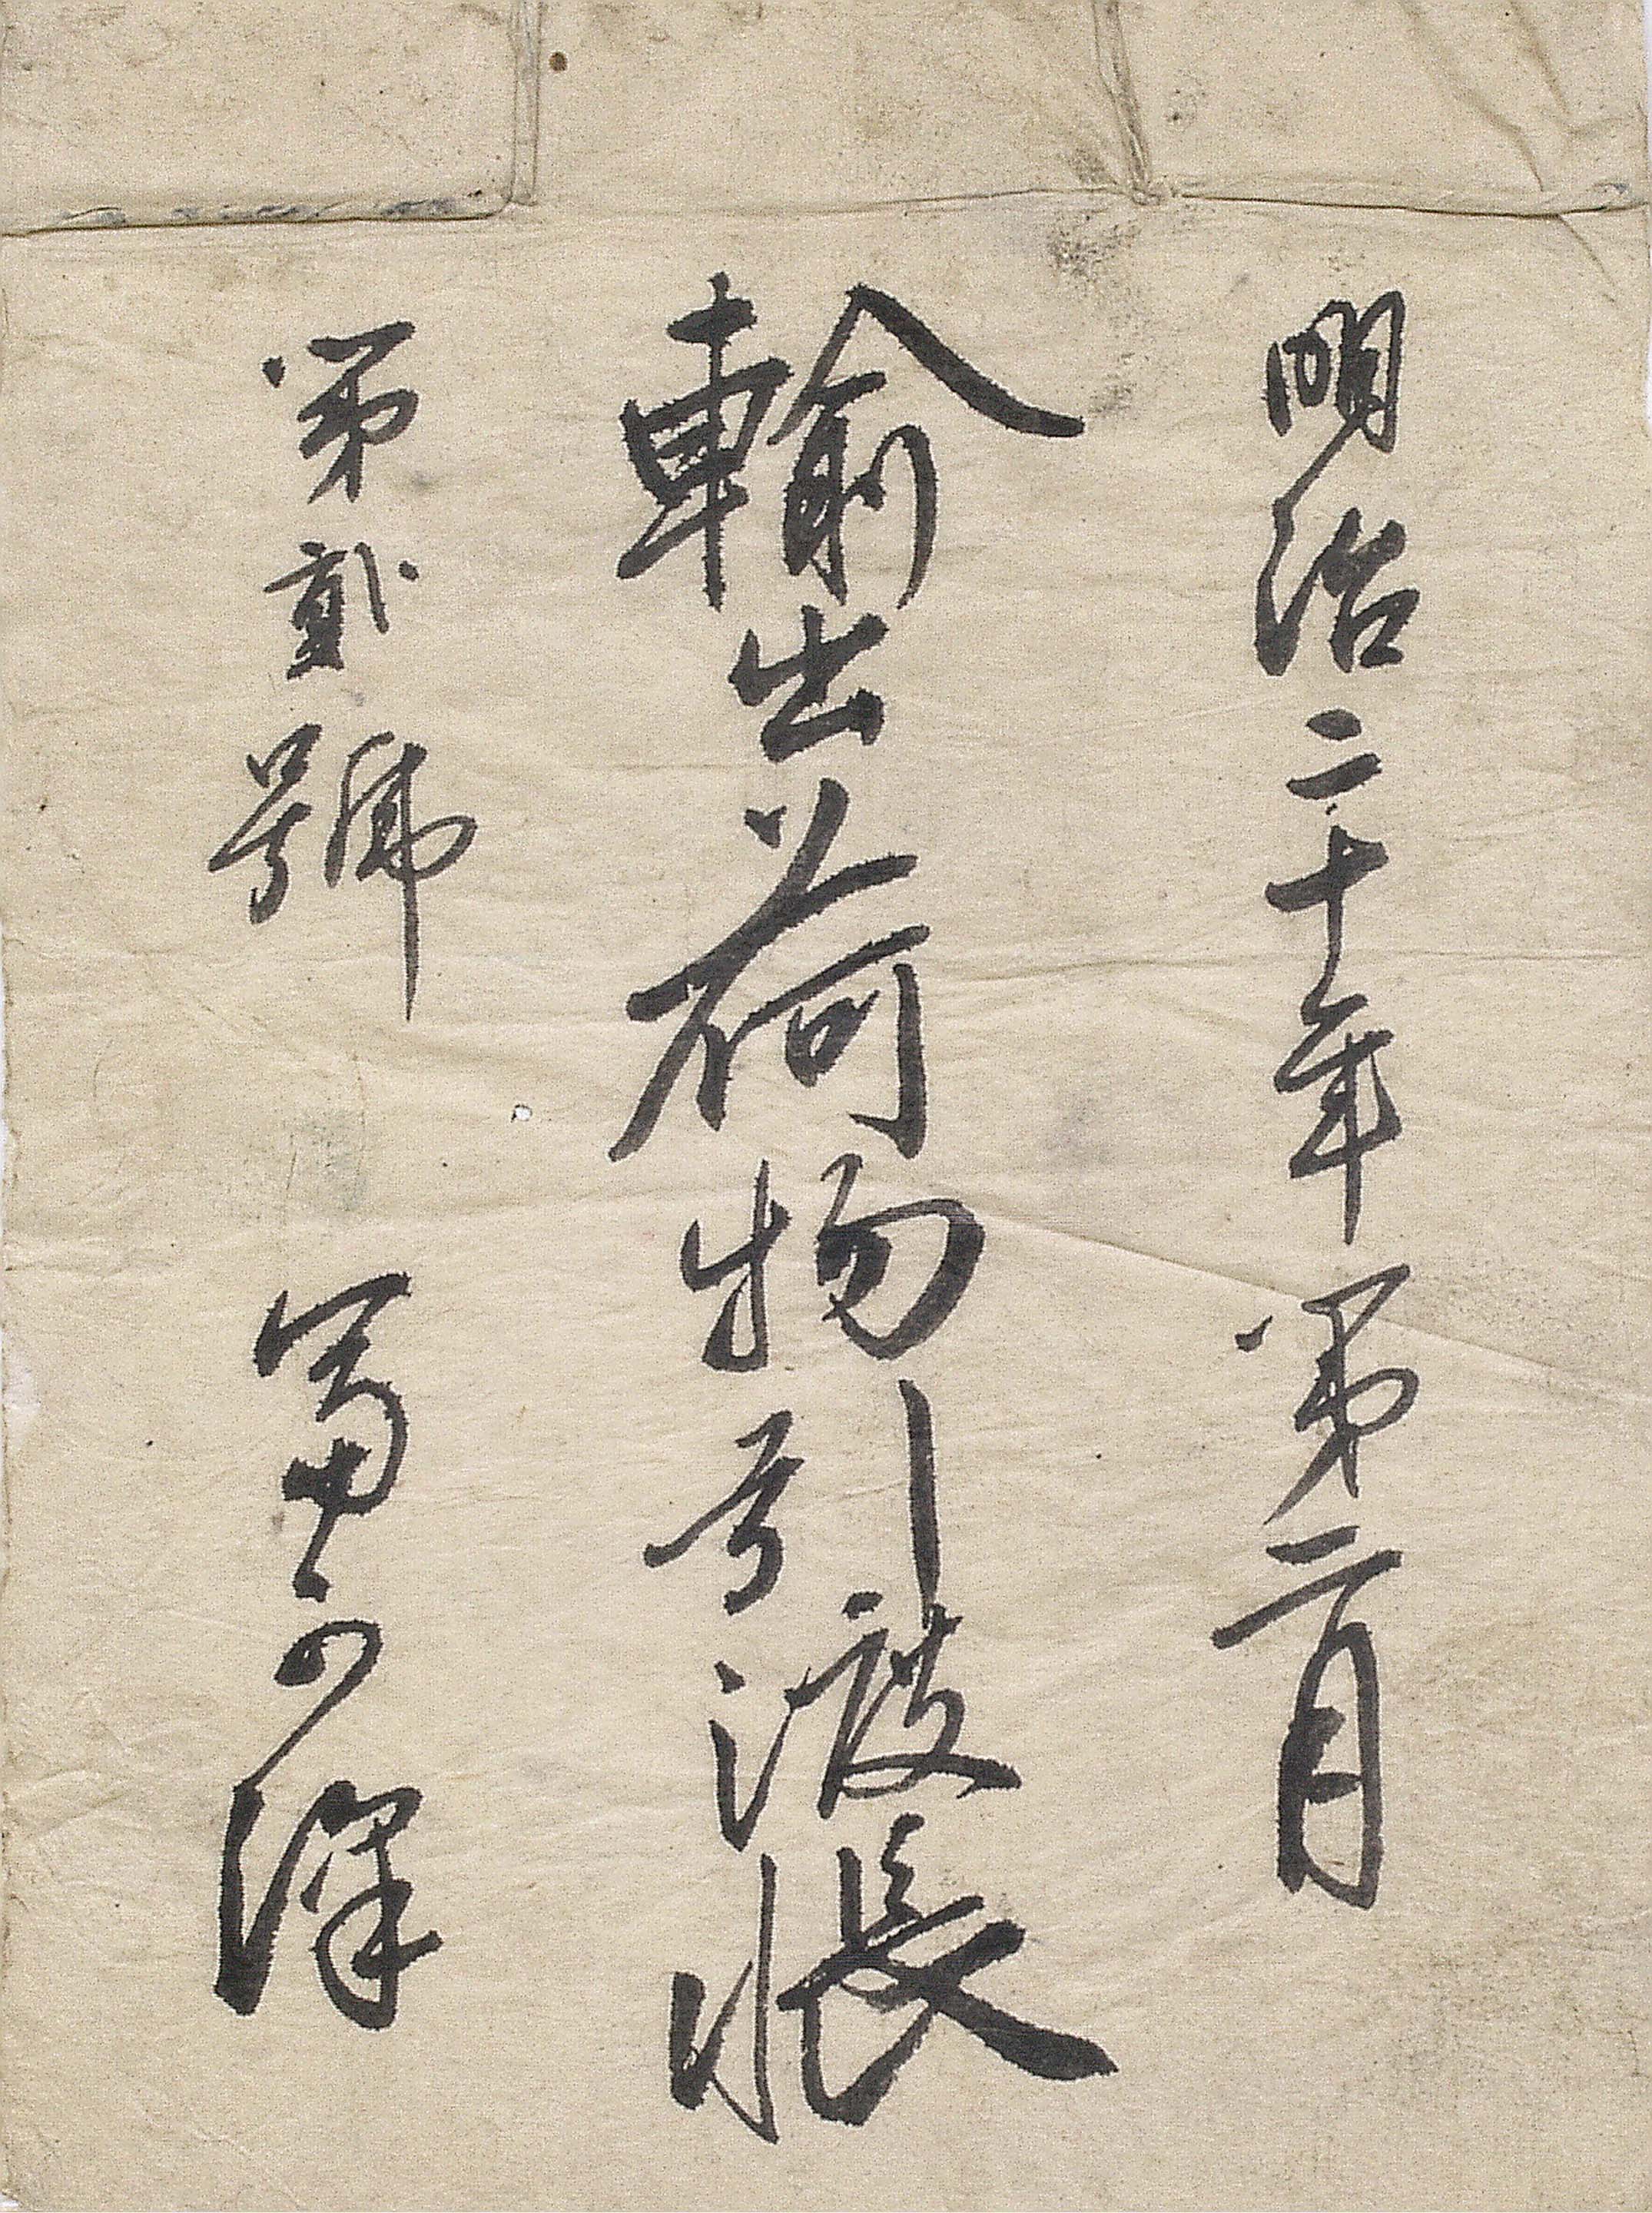 明治二十年第二月
輸出荷物引渡帳
第貳號 冨の澤